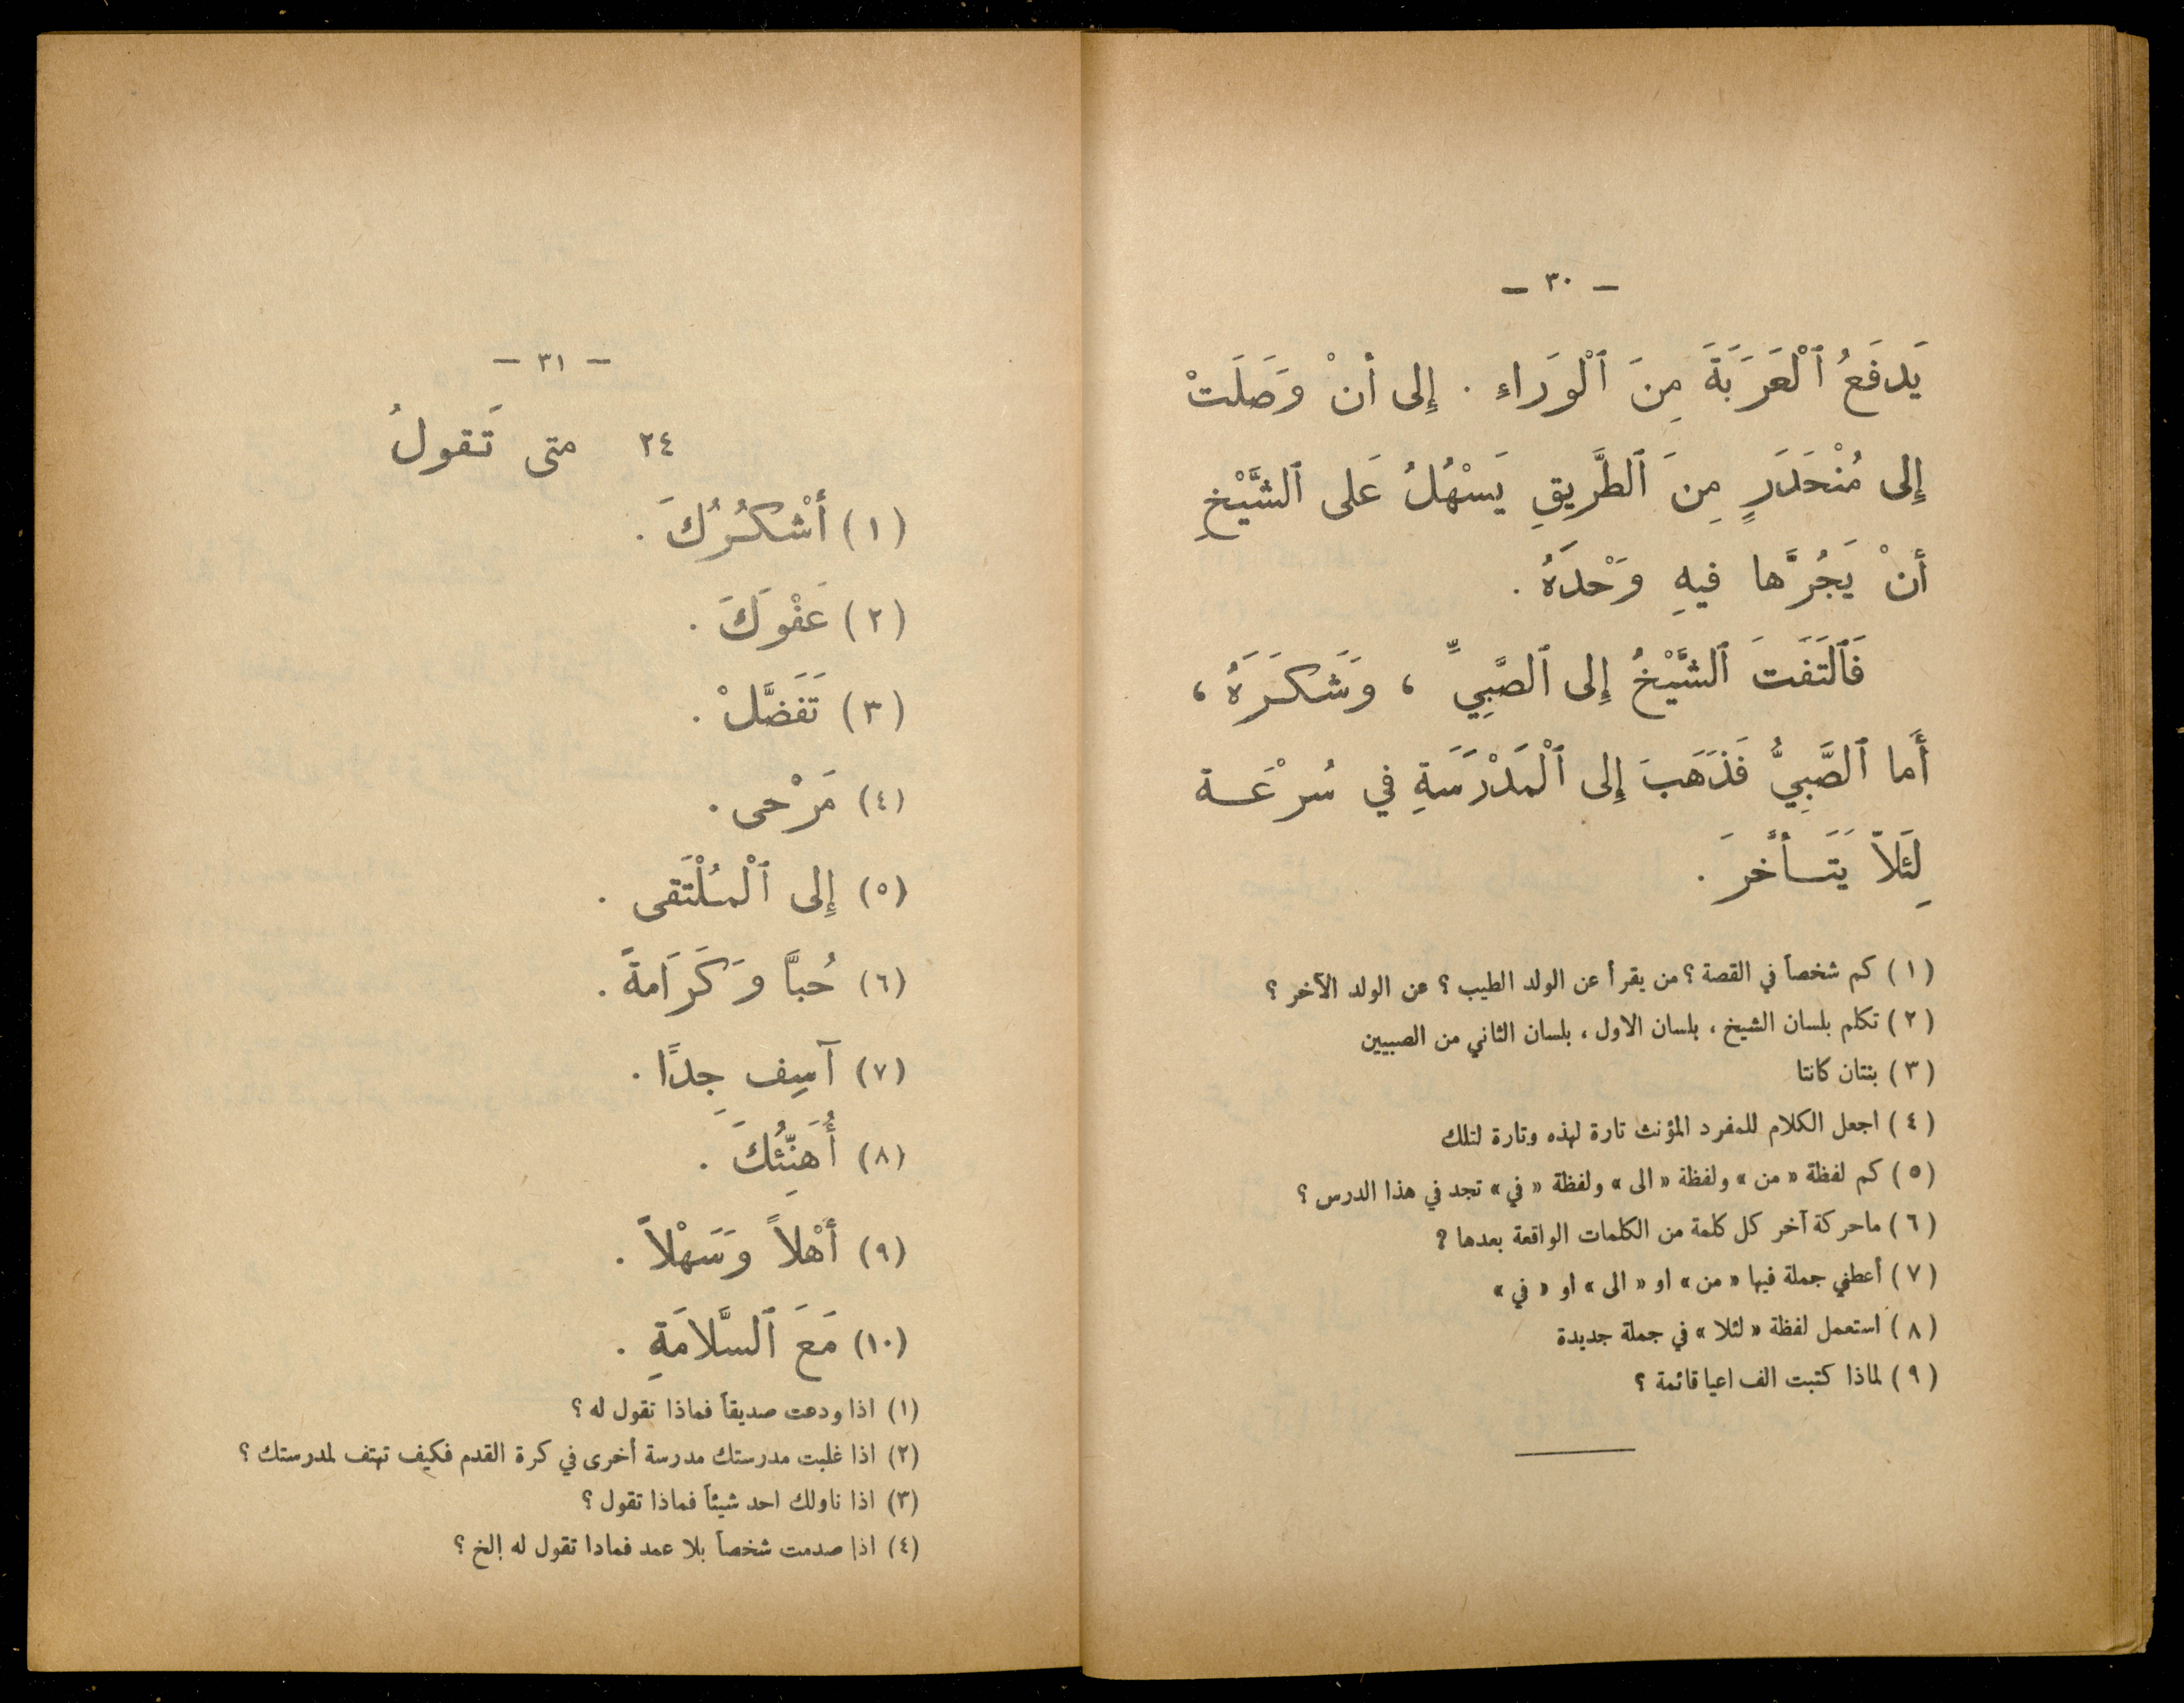 — ٣٠ —
يَدفَعُ ٱلْعَرَبَةَ مِنَ ٱلْوَراءِ . إِلى أَنْ وَصَلَتْ
إِلى مُنْحَدَرٍ مِنَ ٱلطَّرِيقِ يَسْهُلُ عَلى ٱلشَّيْخِ
أَنْ يَجُرَّها فيهِ وَحْدَهُ .
فَٱلتَفَتَ ٱلشَّيْخُ إِلى ٱلصَّبِيِّ ، وَشَكَرَهُ ،
أَما ٱلصَّبِيُّ فَذَهَبَ إِلى ٱلْمَدْرَسَةِ في سُرْعَة
لِئَلاّ يَتَأَخَّرَ .
(١) كم شخصاً في القصة ؟ من يقرأ عن الولد الطيب ؟ عن الولد الآخر ؟
(٢) تكلم بلسان الشيخ ، بلسان الاول ، بلسان الثاني من الصبيين
(٣) بنتان كانتا
(٤) اجعل الكلام للمفرد المؤنث تارة لهذه وتارة لتلك
(٥) كم لفظة « من » ولفظة « الى » ولفظة « في » تجد في هذا الدرس ؟
(٦) ماحركة آخر كل كلمة من الكلمات الواقعة بعدها ؟
(٧) أعطني جملة فيها « من » او « الى » او « في »
(٨) استعمل لفظة « لئلا » في جملة جديدة
(٩) لماذا كتبت الف اعيا قائمة ؟
— ٣١ —
٢٤ متى تَقولُ
(١) أَشْكُرُكَ .
(٢) عَفْوَكَ .
(٣) تَفَضَّلْ .
(٤) مَرْحى .
(٥) إِلى ٱلْمُلْتَقى .
(٦) حُبًّا وَكَرَامَةً .
(٧) آسِف جِدًّا .
(٨) أُهَنِّئُكَ .
(٩) أَهْلاً وَسَهْلاً .
(١٠) مَعَ ٱلسَّلاَمَةِ .
(١) اذا ودعت صديقاً فماذا تقول له ؟
(٢) اذا غلبت مدرستك مدرسة أخرى في كرة القدم فكيف تهتف لمدرستك ؟
(٣) اذا ناولك احد شيئاً فماذا تقول ؟
(٤) اذا صدمت شخصاً بلا عمد فمادا تقول له إلخ ؟